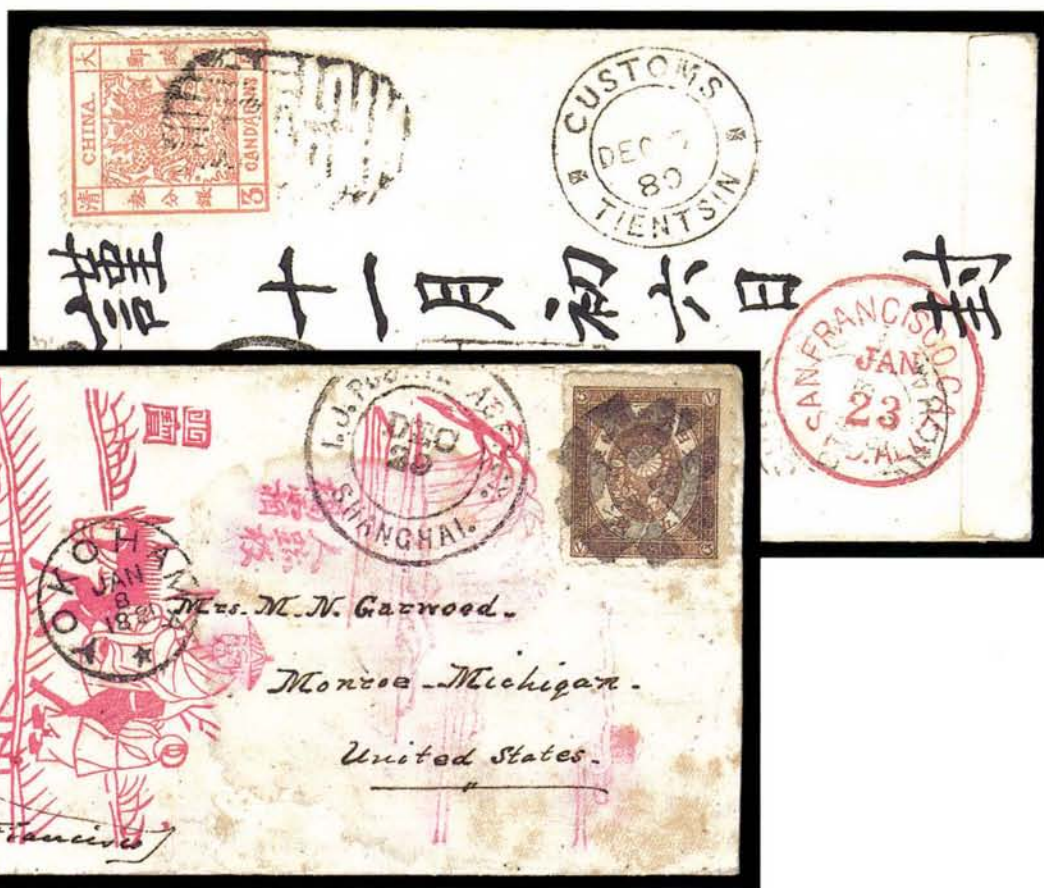 大 郵 政
CHINA.
CANDARINS
清 叁 分 銀 3
CUSTOMS
DEC 7
80
TIENTSIN
謹 十一月初六日 封
SAN FRANCISCO CAL
JAN
23
I.J. POSTAL AGENCY.
DEC
SHANGHAI.
YOKOHAMA
JAN
8
Mrs. M. N. Garwood.
Monroe Michigan.
United States.
Francisco